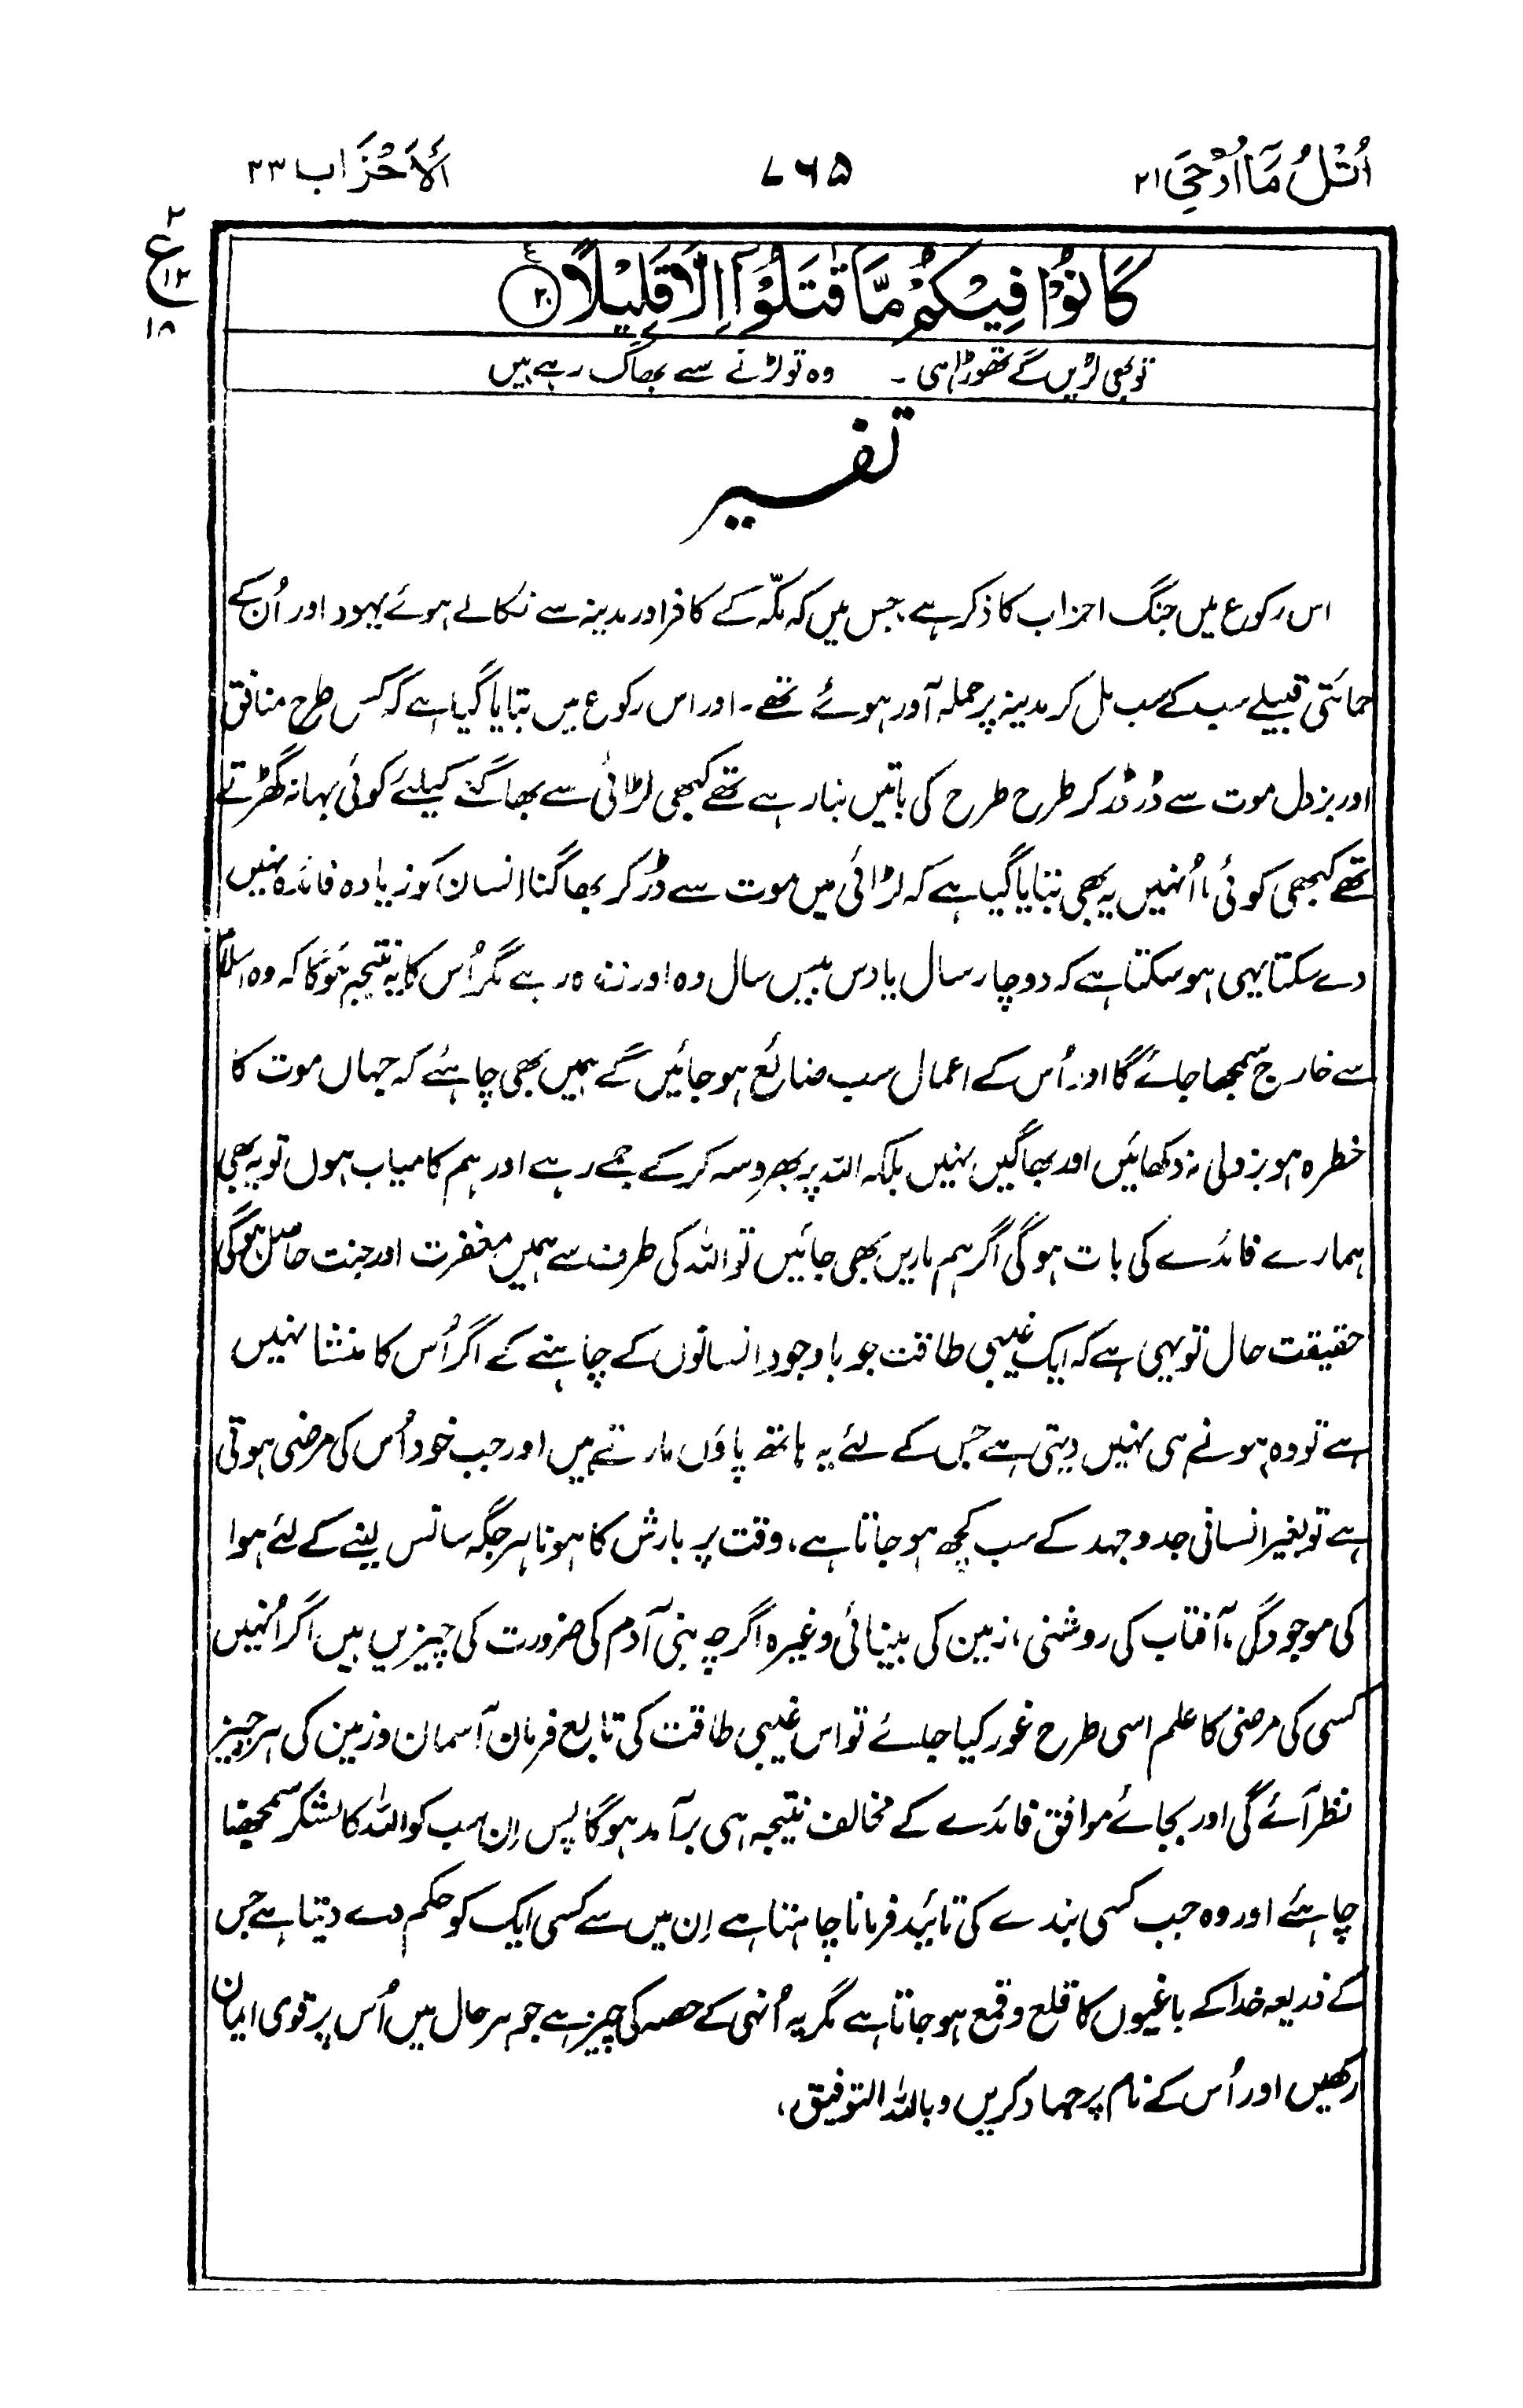 اُتْلُ مَآ اُوْحِیَ ۲۱
۷۶۵
اَلْاَحْزَاب ۳۳
۲
ع
۱۲
۱۸
كَانُوْا فِيْكُمْ مَّا قٰتَلُوْٓا اِلَّا قَلِيْلًا ۲۰
تو بھی لڑیں گے تھوڑا ہی ۔ وہ تو لڑنے سے بھاگ رہے ہیں
تفسیر
اس رکوع میں جنگ احزاب کا ذکر ہے، جس میں کہ مکّہ کے کافر اور مدینہ سے نکالے ہوئے یہود اور اُن کے
حمائتی قبیلے سب کے سب مل کر مدینہ پر حملہ آور ہوئے تھے۔ اور اس رکوع میں بتایا گیا ہے کہ کس طرح منافق
اور بزدل موت سے ڈر ڈر کر طرح طرح کی باتیں بنا رہے تھے کبھی لڑائی سے بھاگنے کیلئے کوئی بہانہ گھڑتے
تھے کبھی کوئی، اُنہیں یہ بھی بتایا گیا ہے کہ لڑائی میں موت سے ڈر کر بھاگنا انسان کو زیادہ فائدہ نہیں
دے سکتا یہی ہو سکتا ہے کہ دو چار سال یا دس بیس سال وہ اور زندہ رہے مگر اُس کا یہ نتیجہ ہوگا کہ وہ اسلام
سے خارج سمجھا جائے گا اور اُس کے اعمال سب ضائع ہو جائیں گے ہمیں بھی چاہئے کہ جہاں موت کا
خطرہ ہو بزدلی نہ دکھائیں اور بھاگیں نہیں بلکہ اللہ پر بھروسہ کر کے جمے رہے اور ہم کامیاب ہوں تو یہ بھی
ہمارے فائدے کی بات ہوگی اگر ہم ماریں بھی جائیں تو اللہ کی طرف سے ہمیں مغفرت اور جنت حاصل ہوگی
حقیقت حال تو یہی ہے کہ ایک غیبی طاقت جو باوجود انسانوں کے چاہنے کے اگر اُس کا منشا نہیں
ہے تو وہ ہونے ہی نہیں دیتی ہے جس کے لئے یہ ہاتھ پاؤں مارتے ہیں اور جب خود اُس کی مرضی ہوتی
ہے تو بغیر انسانی جدوجہد کے سب کچھ ہو جاتا ہے، وقت پر بارش کا ہونا ہر جگہ سانس لینے کے لئے ہوا
کی موجودگی، آفتاب کی روشنی، زمین کی بینائی وغیرہ اگرچہ بنی آدم کی ضرورت کی چیزیں ہیں اگر اُنہیں
کسی کی مرضی کا علم اسی طرح غور کیا جائے تو اس غیبی طاقت کی تابع فرمان آسمان و زمین کی ہر چیز
نظر آئے گی اور بجائے موافق فائدے کے مخالف نتیجہ ہی برآمد ہوگا پس اِن سب کو اللہ کا لشکر سمجھنا
چاہئے اور وہ جب کسی بندے کی تائید فرمانا چاہتا ہے اِن میں سے کسی ایک کو حکم دے دیتا ہے جس
کے ذریعہ خدا کے باغیوں کا قلع وقمع ہو جاتا ہے مگر یہ اُنہی کے حصہ کی چیز ہے جو ہر حال میں اُس پر قوی ایمان
رکھیں اور اُس کے نام پر جہاد کریں وباللہ التوفیق،